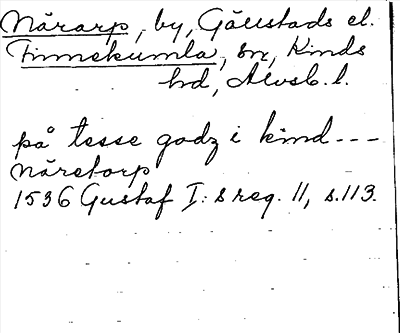 Närarp, by, Gällstads el.
Finnekumla, sn, Kinds
hd, Älvsb. l.
på tesse godz i kind ---
Näretorp
1536 Gustaf I:s reg. 11, s. 113.